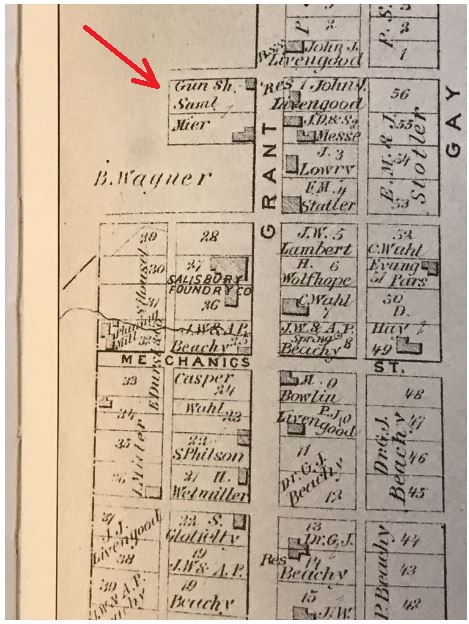 P. 2
2
1
John J.
Livengood
Gun Sh.
Saml
Mier
Res 1 John J.
Livengood
J.D. & S.
Messe
J. 3
Lowry
F.M. 4
Statler
56
55
54
53
E. M. & J.
Stotler
GAY
GRANT
B. Wagner
29
30
31
28
27
SALISBURY
FOUNDRY CO
26
J.W. & A.P.
Beachy 25
J.W. 5
Lambert
H. 6
Wolfhope
C. Wahl
7
J.W. & A.P.
Spring
Beachy 8
52
C. Wahl
Evang
Pars
50
D.
Hay
49
MECHANICS ST.
33
34
35
36
Casper
24
Wahl 23
22
S Philson
21 H.
Welmiller
H. 9
Bowlin
P.J. 10
Livengood
11
Dr. G. J.
Beachy
12
48
47
46
45
Dr. G. J.
Beachy
37
J. J.
Livengood
38
39
J.W. & A.P.
Beachy
S.
19
J.W. & A.P.
19
Beachy
13
Dr. G. J.
Res 14
Beachy
15
J.W.
44
43
42
P. Beachy